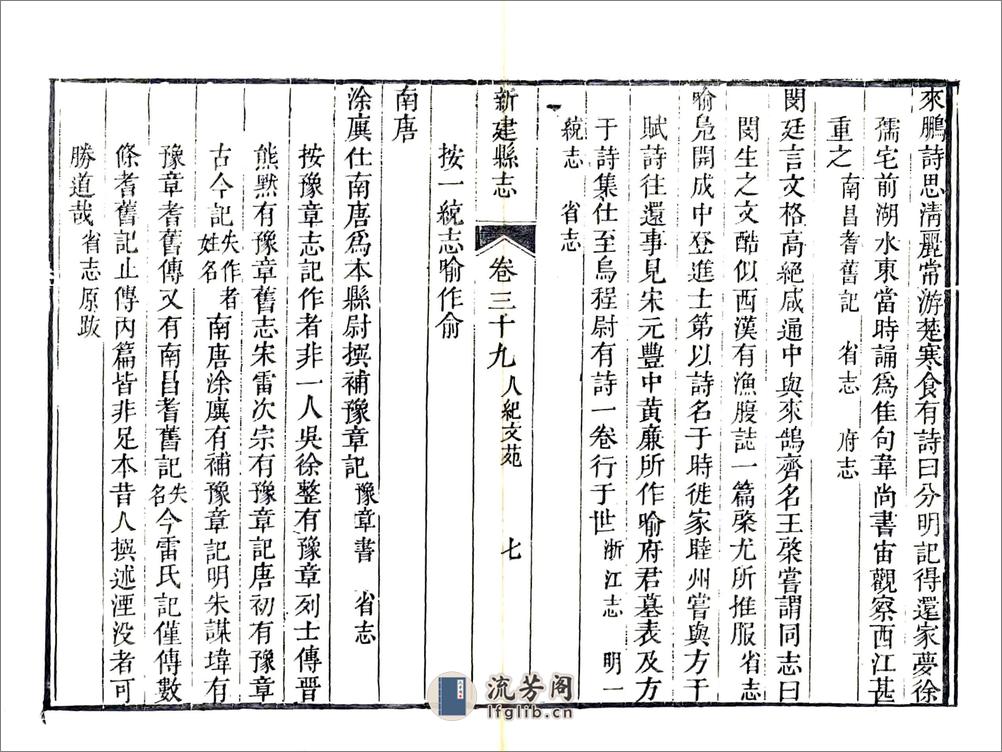 來鵬詩思淸麗常游楚寒食有詩曰分明記得還家夢徐
孺宅前湖水東當時誦爲佳句韋尚書宙觀察西江甚
重之南昌耆舊記 省志 府志
閔廷言文格高絕咸通中與來鵠齊名王棨嘗謂同志曰
閔生之文酷似西漢有漁腹誌一篇棨尤所推服省志
喻凫開成中登進士第以詩名于時徙家睦州嘗與方干
賦詩往還事見宋元豐中黃廉所作喻府君墓表及方
于詩集仕至烏程尉有詩一卷行于世浙江志 明一
統志 省志
按一統志喻作俞
新建縣志 卷三十九 人紀文苑 七
南唐
涂廙仕南唐爲本縣尉撰補豫章記豫章書 省志
按豫章志記作者非一人吳徐整有豫章列士傳晉
熊黙有豫章舊志宋雷次宗有豫章記唐初有豫章
古今記失作者姓名南唐涂廙有補豫章記明朱謀㙔有
豫章耆舊傳又有南昌耆舊記失名今雷氏記僅傳數
條耆舊記止傳內篇皆非足本昔人撰述湮没者可
勝道哉省志原跋
流芳阁
lfglib.cn